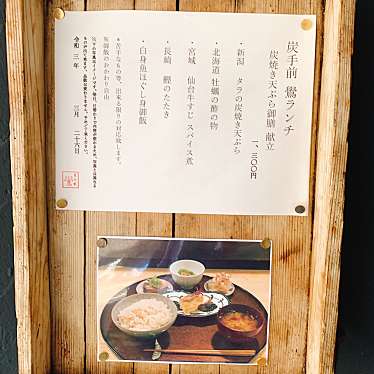 炭手前 鷽ランチ
炭焼き天ぷら御膳 献立
一、三〇〇円
・新潟 タラの炭焼き天ぷら
・北海道 牡蠣の酢の物
・宮城 仙台牛すじ スパイス煮
・長崎 鰹のたたき
・白身魚ほぐし身御飯
※苦手なもの等、出来る限りの対応致します。
※御飯のおかわり自由
令和 三年 三月 二十六日